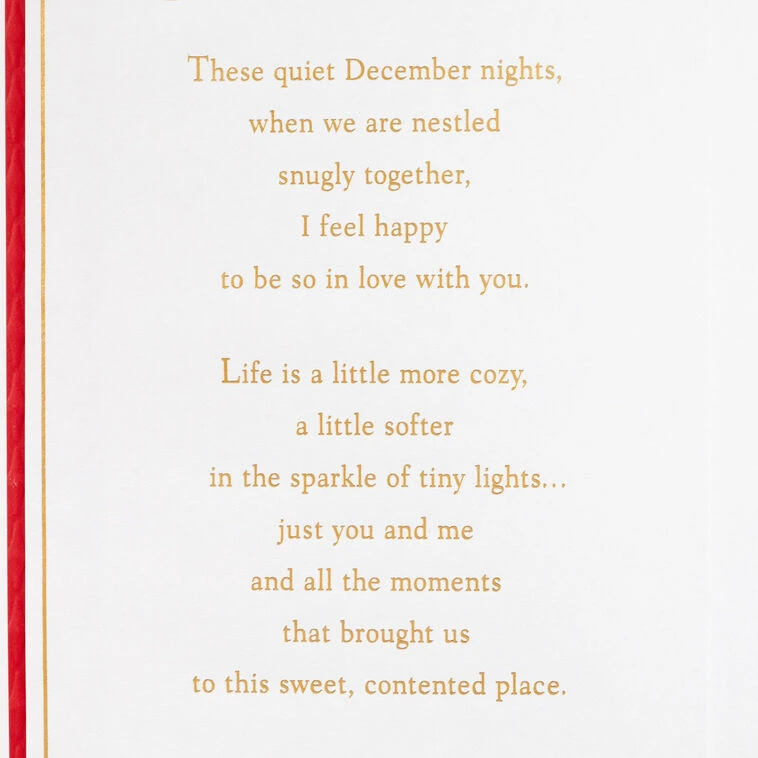 These quiet December nights,
when we are nestled
snugly together,
I feel happy
to be so in love with you.
Life is a little more cozy,
a little softer
in the sparkle of tiny lights...
just you and me
and all the moments
that brought us
to this sweet, contented place.